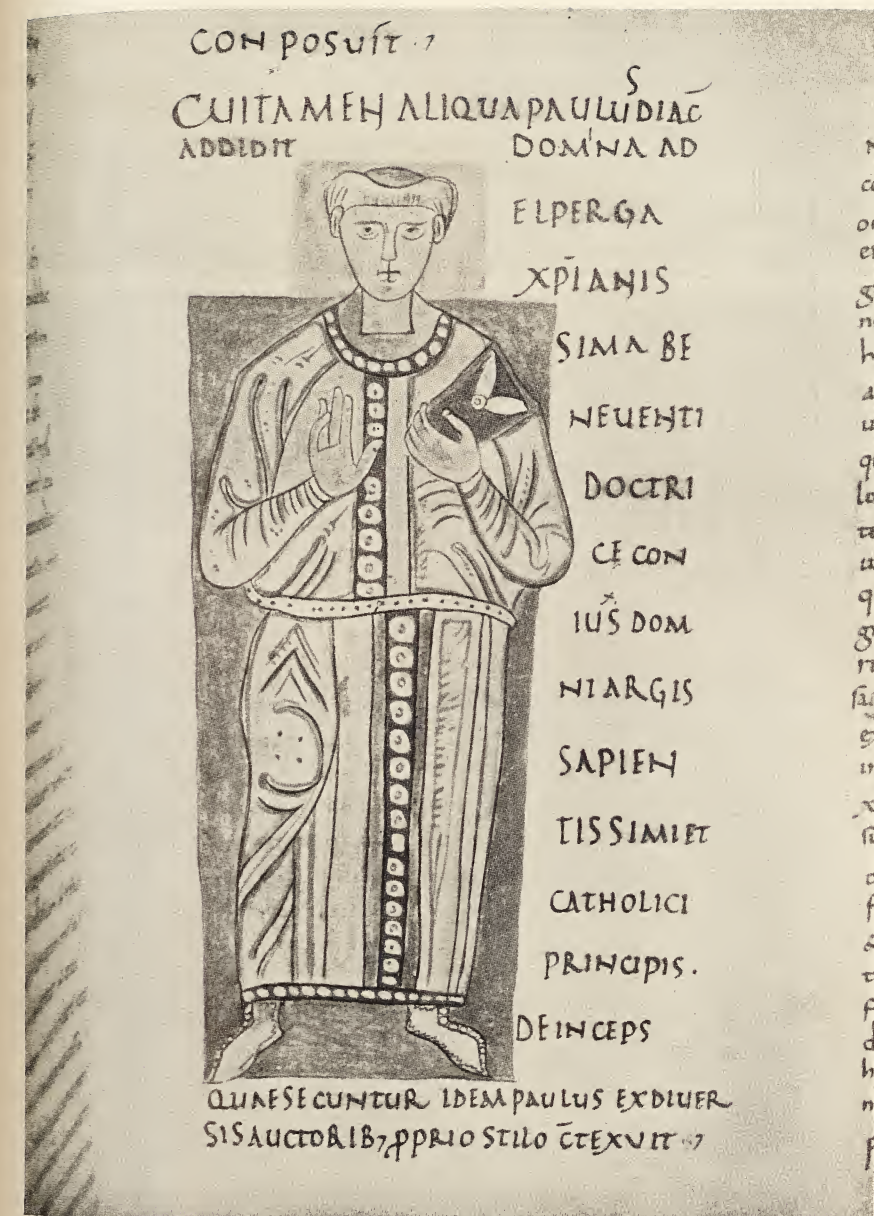 CONPOSUIT·7
CUITAMEN ALIQUA PAULUS DIAC̄
ADDIDIT DOMINA AD
ELPERGA
XP̄IANIS
SIMA BE
NEUENTI
DOCTRI
CE CON
IUS̄ DOM
NI ARGIS
SAPIEN
TISSIMI ET
CATHOLICI
PRINCIPIS.
DEINCEPS
QUAESECUNTUR IDEM PAULUS EXDIUER
SIS AUCTORIB7 ꝓPRIO STILO C̄TEXUIT·7